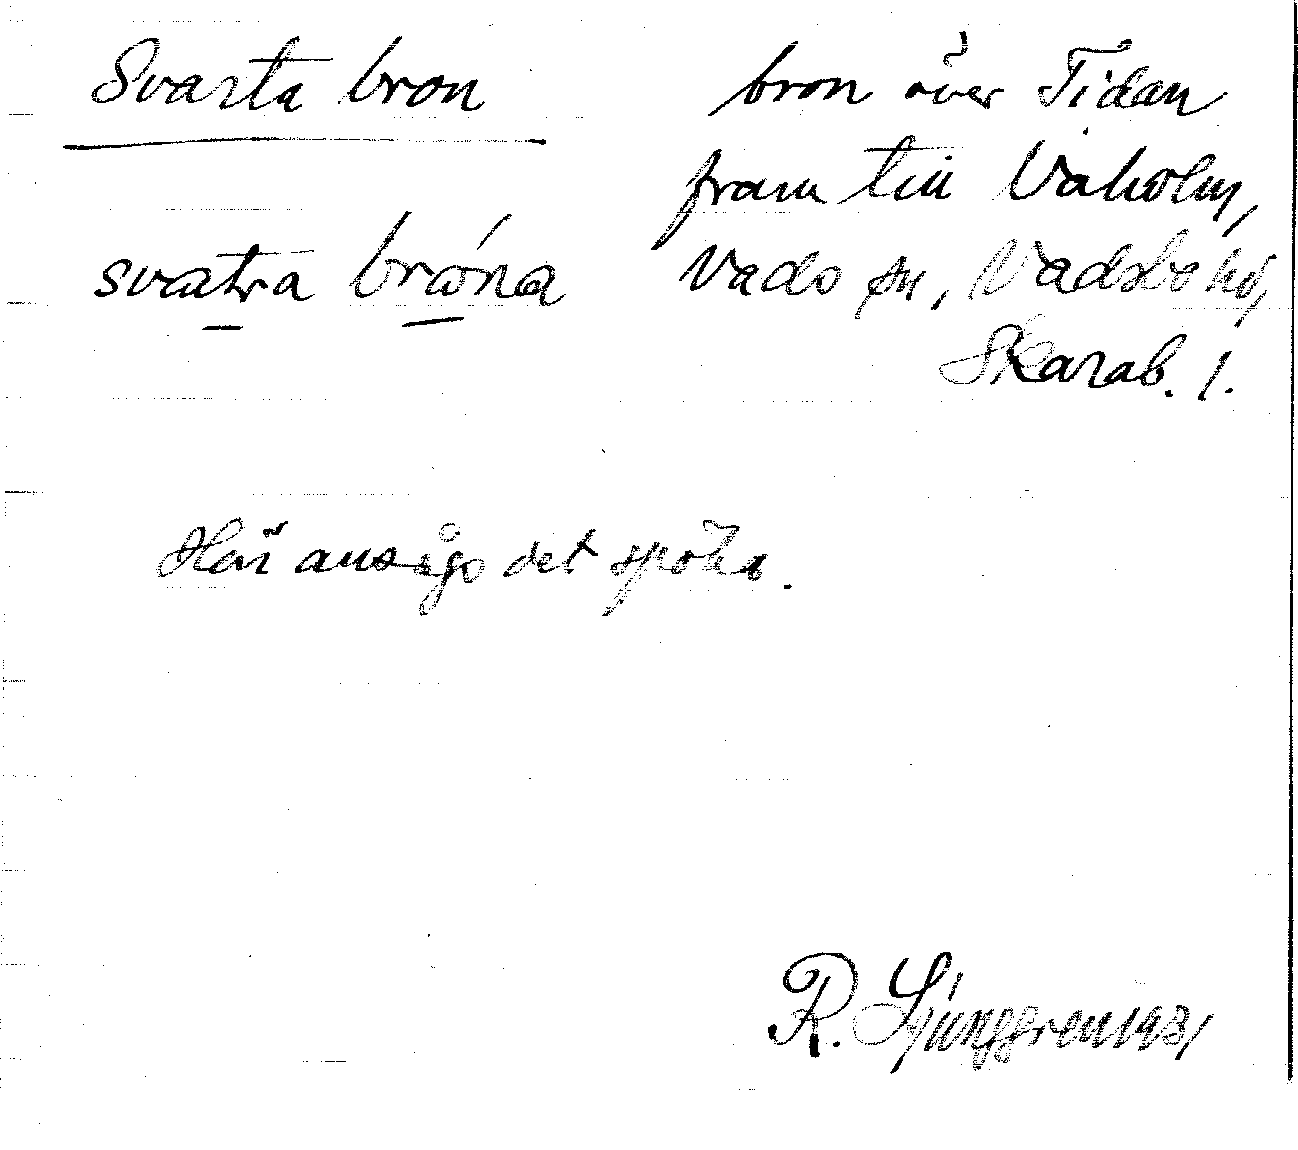 Svarta bron
bron över Tidan
fram till Vaholm,
svatra bróna
Vads sn, Vadsbo hd,
Skarab. l.
Här ansågs det spöka.
R. Ljunggren 1931